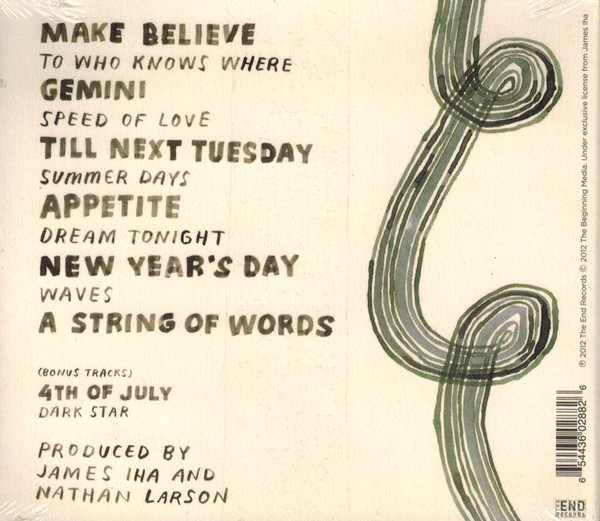 MAKE BELIEVE
TO WHO KNOWS WHERE
GEMINI
SPEED OF LOVE
TILL NEXT TUESDAY
SUMMER DAYS
APPETITE
DREAM TONIGHT
NEW YEAR'S DAY
WAVES
A STRING OF WORDS
(BONUS TRACKS)
4TH OF JULY
DARK STAR
PRODUCED BY
JAMES IHA AND
NATHAN LARSON
℗ 2012 The End Records © 2012 The Beginning Media. Under exclusive license from James Iha
6 54436 02882 6
THE END
RECORDS